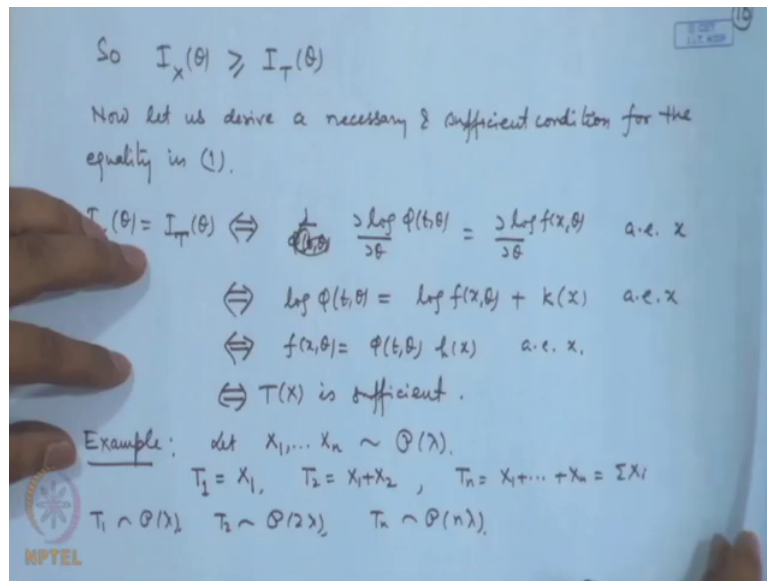 10
So I_X(θ) ⩾ I_T(θ)
Now let us derive a necessary & sufficient condition for the
equality in (1).
(θ) = I_T(θ) ⇔ ∂ log φ(t,θ) / ∂θ = ∂ log f(x,θ) / ∂θ a.e. x
⇔ log φ(t,θ) = log f(x,θ) + k(x) a.e. x
⇔ f(x,θ) = φ(t,θ) h(x) a.e. x.
⇔ T(X) is sufficient.
Example: Let X₁,... Xₙ ~ P(λ).
T₁ = X₁, T₂ = X₁+X₂ , Tₙ = X₁+⋯+Xₙ = ΣXᵢ
T₁ ~ P(λ), T₂ ~ P(2λ), Tₙ ~ P(nλ).
NPTEL